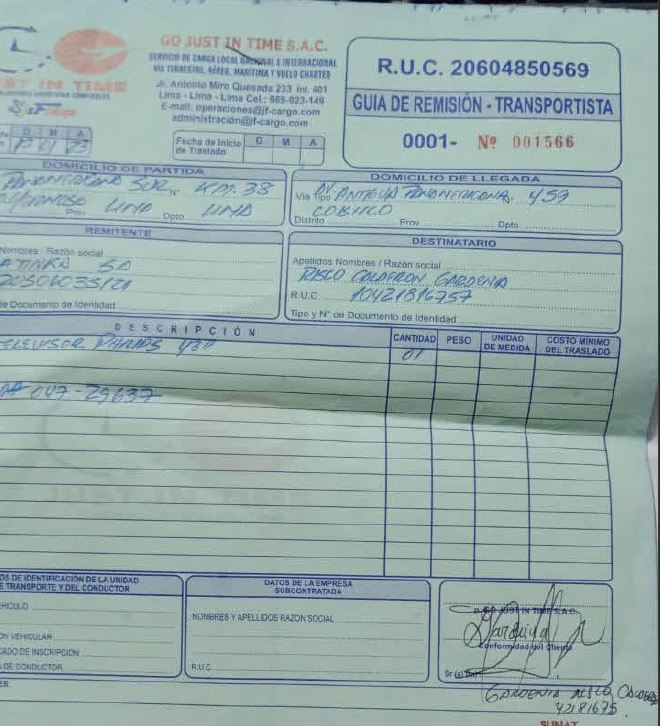 GO JUST IN TIME S.A.C.
SERVICIO DE CARGA LOCAL NACIONAL E INTERNACIONAL
VIA TERRESTRE, AÉREO, MARITIMA Y VUELO CHARTER
Jr. Antonio Miro Quesada 233 Int. 401
Lima - Lima - Lima Cel.: 989-923-149
E-mail: operaciones@jf-cargo.com
administración@jf-cargo.com
R.U.C. 20604850569
GUIA DE REMISIÓN - TRANSPORTISTA
0001- Nº 001566
ST IN TIME
D M A
Fecha de Inicio de Traslado D M A
DOMICILIO DE PARTIDA
PANAMERICANA SUR Nº KM. 38
Prov LIMA Dpto LIMA
DOMICILIO DE LLEGADA
Via Tipo AV. ANTIGUA PANAMERICANA 459
Distrito Prov Dpto
REMITENTE
Nombres / Razón social
ATINKA SA
de Documento de Identidad
DESTINATARIO
Apellidos Nombres / Razón social
RISCO CALDERON GARDENIA
R.U.C. 10421816757
Tipo y N° de Documento de Identidad
DESCRIPCIÓN CANTIDAD PESO UNIDAD DE MEDIDA COSTO MÍNIMO DEL TRASLADO
TELEVISOR PHILIPS 01
047-29637
JUST IN TIME
OS DE IDENTIFICACIÓN DE LA UNIDAD
E TRANSPORTE Y DEL CONDUCTOR
HICULO
ON VEHICULAR
CADO DE INSCRIPCION
A DE CONDUCTOR
DATOS DE LA EMPRESA
SUBCONTRATADA
NOMBRES Y APELLIDOS RAZON SOCIAL
R.U.C.
GO JUST IN TIME S.A.C.
Conformidad del Cliente
Sr (a) (ta)
GARDENIA RISCO
42181675
ES:
SUNAT